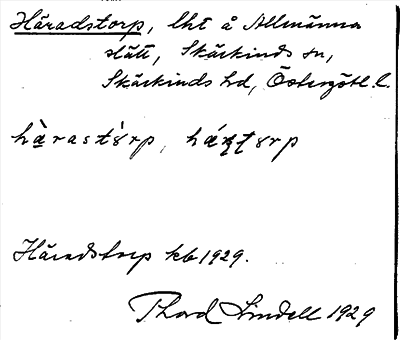 Häradstorp, lht å Allmänna
slätt, Skärkinds sn,
Skärkinds hd, Östergötl. l.
Häradstorp kb 1929.
Thord Lindell 1929